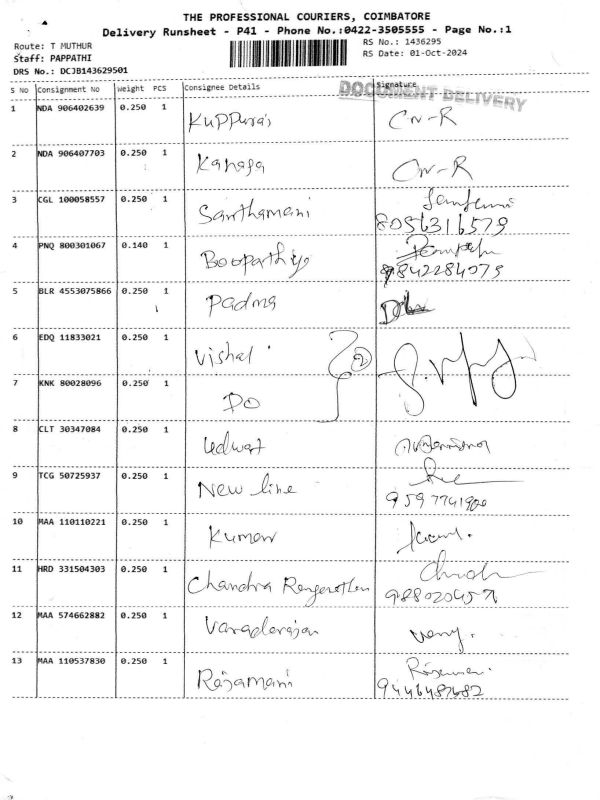 THE PROFESSIONAL COURIERS, COIMBATORE
Delivery Runsheet - P41 - Phone No.:0422-3505555 - Page No.:1
Route: T MUTHUR
Staff: PAPPATHI
DRS No.: DCJB143629501
RS No.: 1436295
RS Date: 01-Oct-2024
S No Consignment No Weight PCS Consignee Details Signature
DOCUMENT DELIVERY
1 NDA 906402639 0.250 1 Kuppuras CN-R
2 NDA 906407703 0.250 1 Kanaga CN-R
3 CGL 100058557 0.250 1 Santhamani
8056316579
4 PNQ 800301067 0.140 1 Boopathiyo
9842284075
5 BLR 4553075866 0.250 1 Padma
6 EDQ 11833021 0.250 1 Vishal 2
7 KNK 80028096 0.250 1 DO
8 CLT 30347084 0.250 1
9 TCG 50725937 0.250 1 New line
10 MAA 110110221 0.250 1 Kumar
11 HRD 331504303 0.250 1 Chandra
12 MAA 574662882 0.250 1 Varadarajan
13 MAA 110537830 0.250 1 Rajamani
9446487682